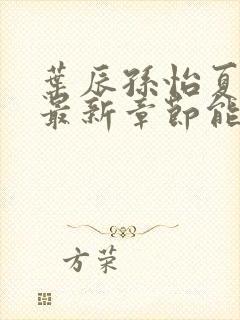 葉辰孫怡夏
最新章節能
方荣